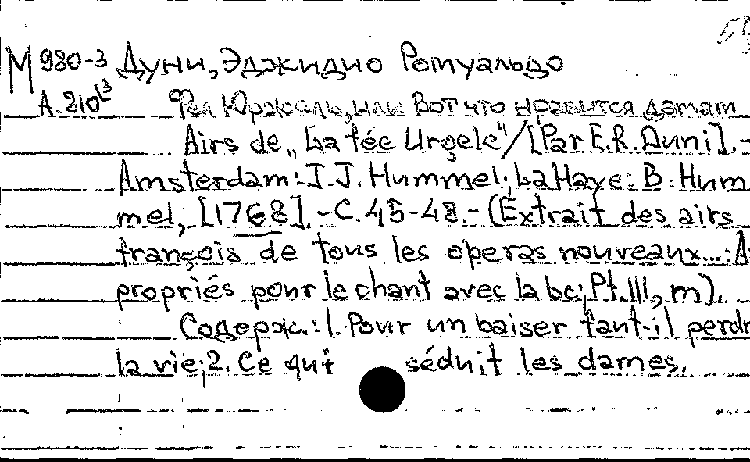 М 980-3 Дуни, Эджидио Ромуальдо
А. 210 Фея Юржель, или Вот что нравится дамам
Airs de „La fée Urgèle"/[Par E.R. Duni].-
Amsterdam: J.J. Hummel; La Haye: B. Hum
mel, [1768].-С. 45-48.-(Extrait des airs
françois de tous les operas nouveaux...: A
propriés pour le chant avec la bc; Pt. III, m).
Содерж.: 1. Pour un baiser faut-il perdr
la vie; 2. Ce qui séduit les dames.